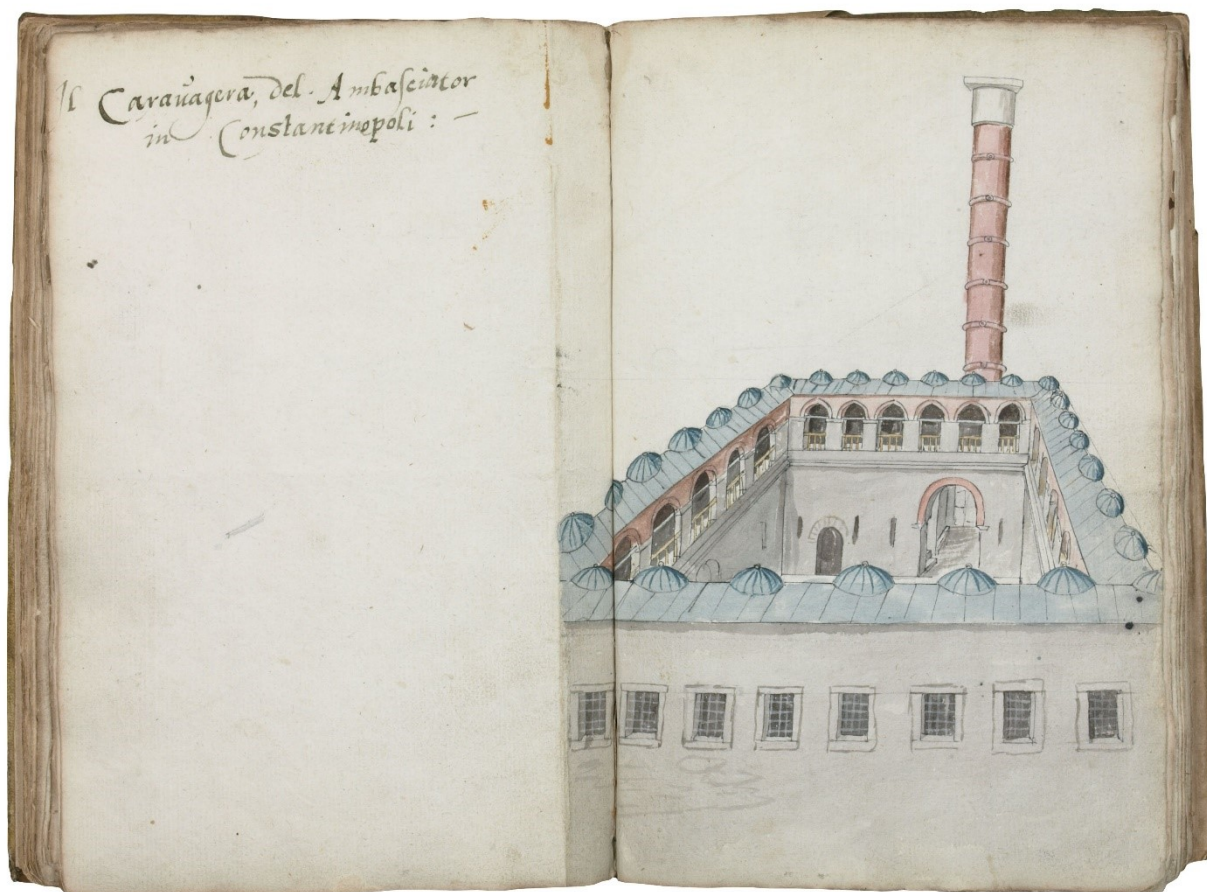 Il Carauagera, del. Ambasciator
in Constantinopoli : —